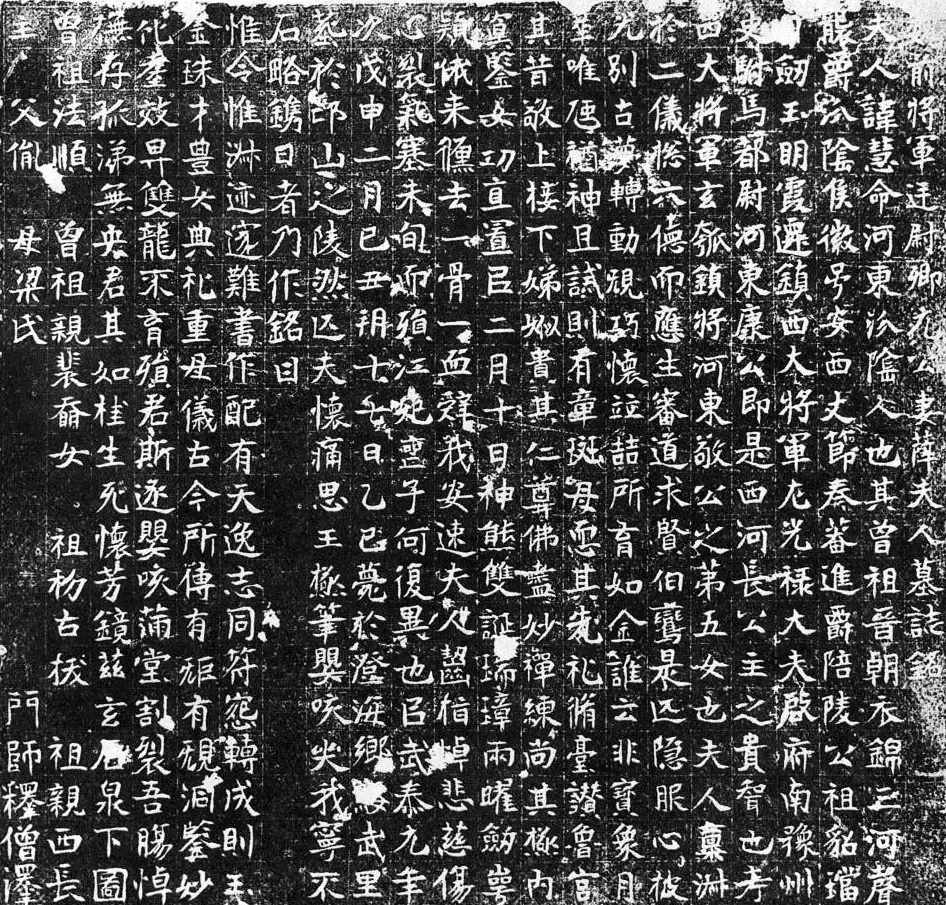 前將軍廷尉卿元公妻薛夫人墓誌銘
夫人諱慧命河東汾陰人也其曾祖晉朝衣錦三河聲
服爵汾陰侯徵号安西丈節秦蕃進爵陪陵公祖貂璫
劒玉明霞還鎮西大將軍左光祿大夫啟府南豫州
史駙馬都尉河東康公即是西河長公主之貴聟也考
西大將軍玄瓠鎮將河東敬公之第五女也夫人稟淋
於二儀總六德而應生審道求賢伯鸞是匹隐服心披
先別古 轉動規巧懷竝喆所育如金誰云非寳象月
華唯 猶神且試則有章斑母恧其先礼脩臺讃魯宮
其昔敬上接下娣姒貴其仁尊佛盡妙禪練尚其極内
寘鑒女功亘置㠯二月十日神熊雙誕瑞璋兩曜劒
頴俄来 去一骨一血辞我安速夫人齧指悼悲慈傷
心裂氣塞未旬而殞江妃靈子何復異也㠯武泰元年
次戊申二月己丑朔十七日乙巳薨於澄海鄉 武里
塟於邙山之陵然匹夫懷痛思王極筆嬰咳火我寧不
石略鐫曰者乃作銘曰
惟令惟淋迹逺難書作配有天逸志同符宛轉成則玉
金珠才豊女典礼重母儀古今所傳有矩有規洞鑒妙
化 效昇雙龍不育殞君斯逐嬰咳蒲堂割裂吾腸悼
撫存孤涕無央君其如桂生死懷芳鏡兹玄石泉下圖
曾祖法順 曾祖親裴 女 祖初古拔 祖親西長
主 父胤 母梁氏 門師釋僧澤